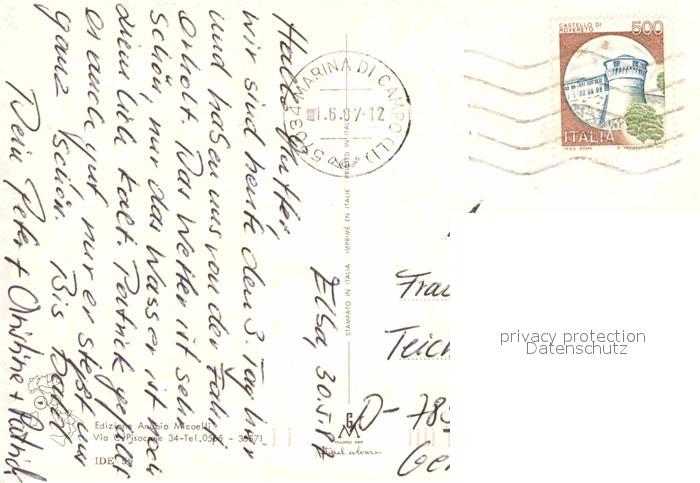 Elba, 30.5.87
Hallo
wir sind heute den 3. Tag hier
und haben uns von der Fahrt
erholt. Das Wetter ist sehr
schön nur das Wasser ist noch
ziemlich kalt. Patrick gefällt
es auch gut, nur er
ganz schön. Bis bald
Peter + Christine + Patrick
Edizione Micoelli
IDE
STAMPATO IN ITALIA IMPRIMÉ EN ITALIE PRINTED IN ITALY
57034 MARINA DI CAMPO (LI)
1.6.87-12
CASTELLO DI
ROVERETO
500
ITALIA
I.P.Z.S. ROMA
Frau
Teich
D-
Ge
privacy protection
Datenschutz
Natural colours